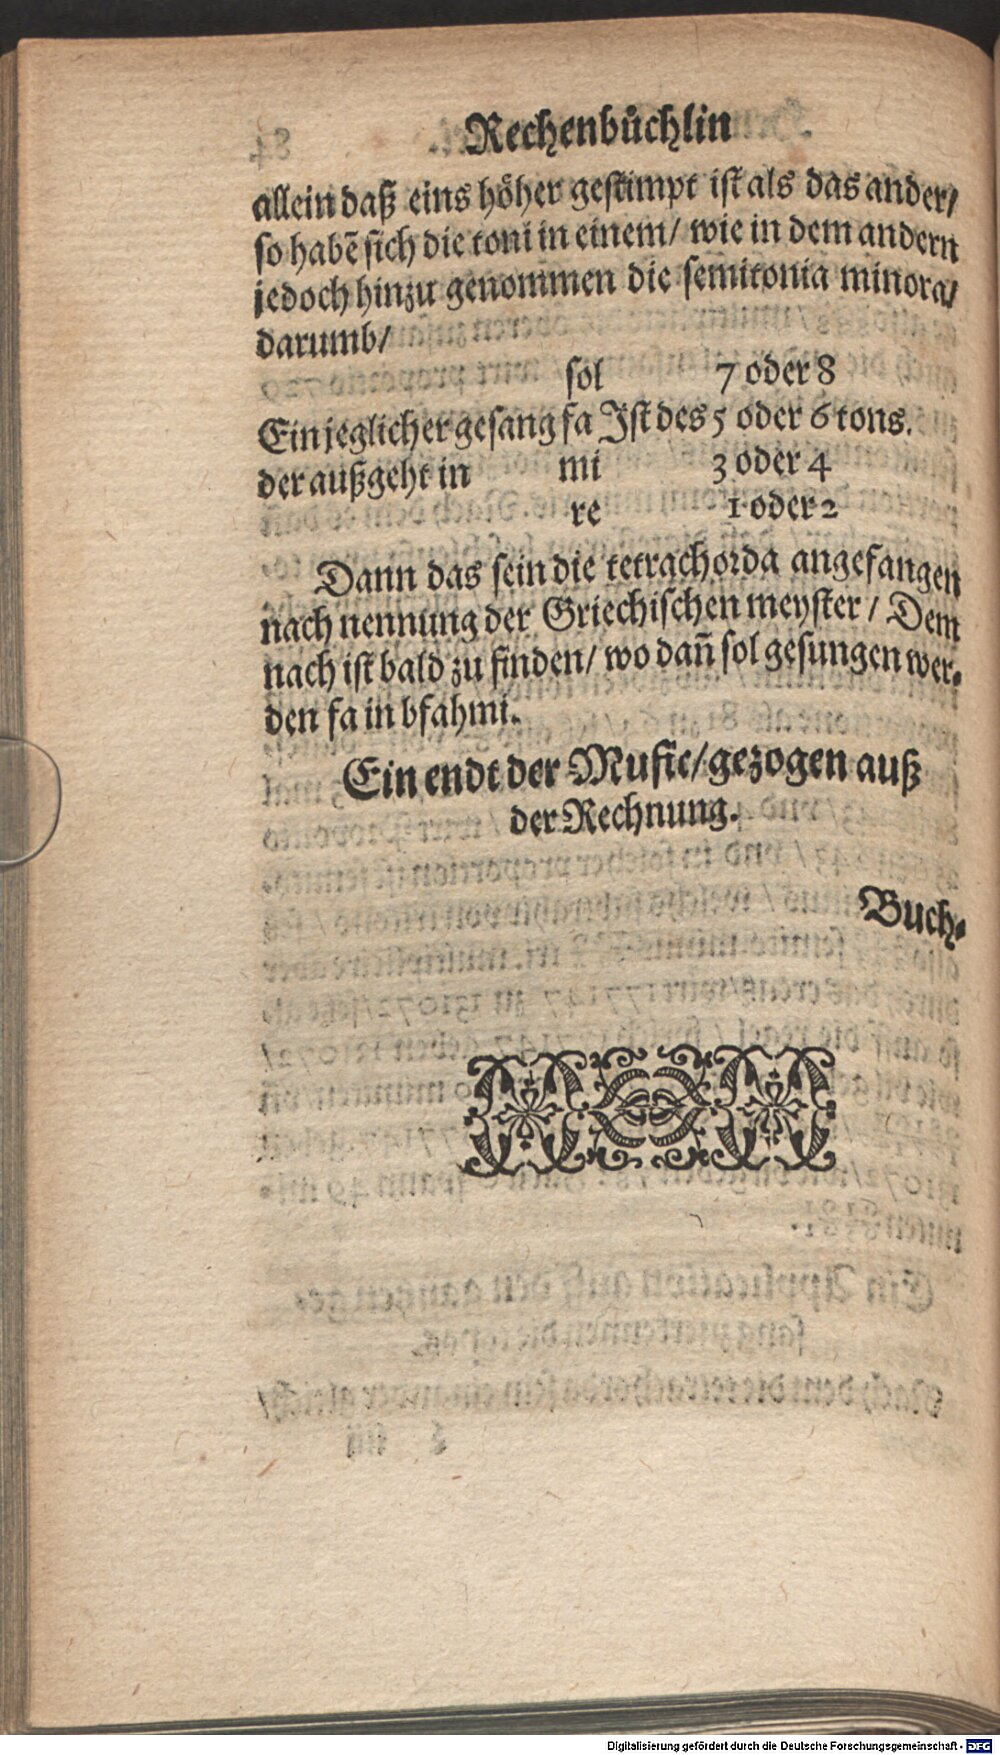 Rechenbůchlin
allein daß eins hôher gestimpt ist als das ander/
so habẽ sich die toni in einem/ wie in dem andern
jedoch hinzu genommen die semitonia minora/
darumb/
sol 7 oder 8
Ein jeglicher gesang fa Ist des 5 oder 6 tons.
der außgeht in mi 3 oder 4
re 1 oder 2
Dann das sein die tetrachorda angefangen
nach nennung der Griechischen meyster / Dem
nach ist bald zu finden/ wo dañ sol gesungen wer-
den fa in bfahmi.
Ein endt der Music/ gezogen auß
der Rechnung.
Buch-
Digitalisierung gefördert durch die Deutsche Forschungsgemeinschaft - DFG